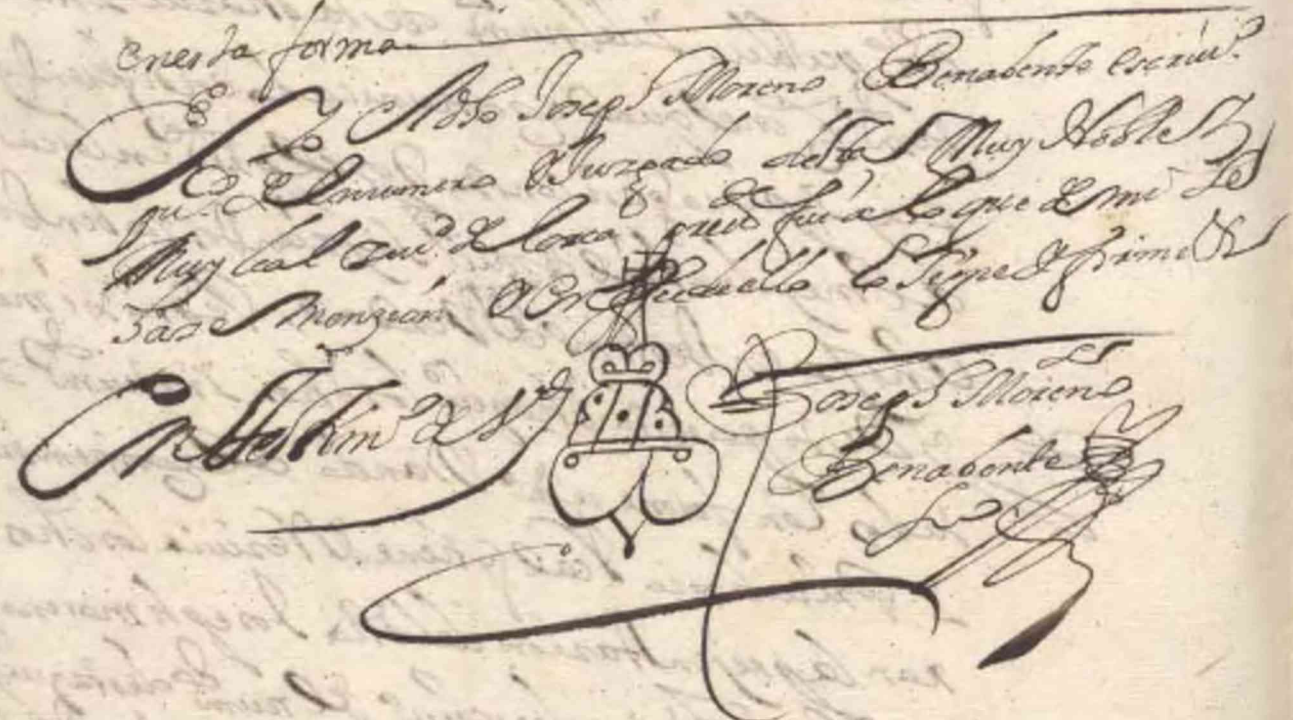 en esta forma
E Yo el dho Joseph Moreno Benabente escriuº
pu.co del numero y Juzgado desta Muy Noble y
Muy leal ciud.d de lorca pres.te fui a lo que de mi se
haze menzión y en fee dello lo signe y firme
En testim.º de V.d
Joseph Moreno
Benabente